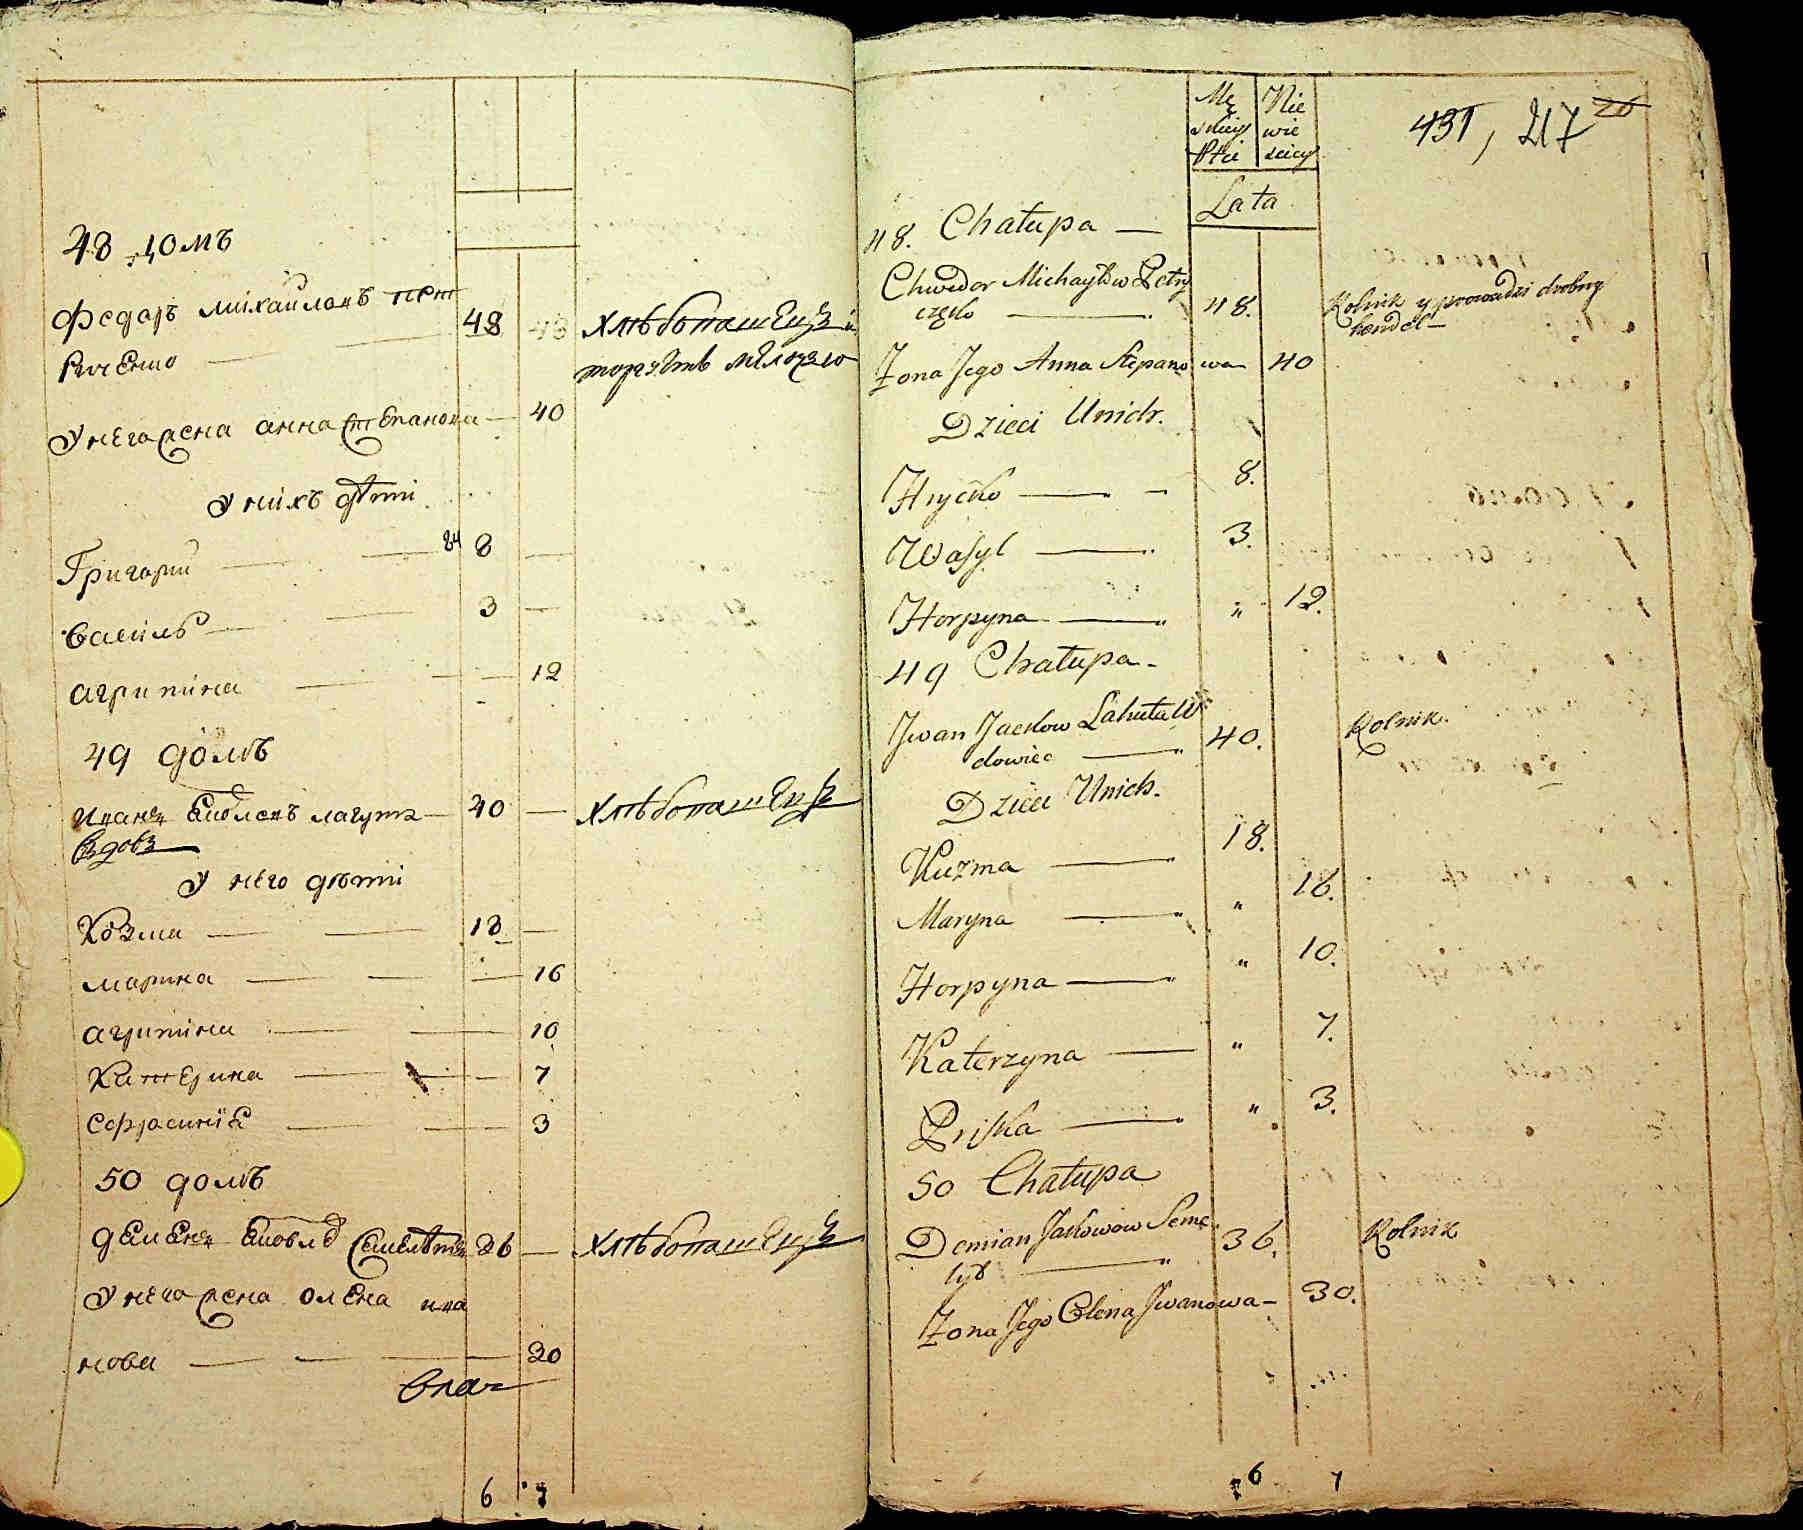 48 домъ
Федоръ Михайловъ пет
риченко — 48 48 хлѣбопашецъ и
торгуетъ мелочью
У него жена анна Степанова — 40
У нихъ дѣти
Григорий — 84 8 —
Василь — 3 —
агрипина — 12
49 домъ
Иванъ Яковлевъ лагута — 40 — хлѣбопашецъ
вдовъ
У него дѣти
Козма — 18 —
марина — 16
агрипина — 10
Катерина — 7
Ефросинія — 3
50 домъ
Демянъ Яковлевъ 36 — хлѣбопашецъ
У него жена олена ива
нова — 30
6 7
Mę Nie
skiey wie
Płci sciey
431, 217 26
Lata
48. Chałupa —
Chwedor Michayłow Petry
częko — 48. Rolnik y prowadzi drobny
handel —
Żona Jego Anna Stepanowa 40
Dzieci Unich.
Hryćko — 8.
Wasyl — 3.
Horpyna — " 12.
49 Chałupa —
Jwan Jackow Lahuta W
dowiec — 40. Rolnik.
Dzieci Unich.
Kuzma — 18.
Maryna — " 16.
Horpyna — " 10.
Katerzyna — " 7.
Priska — " 3.
50 Chałupa
Demian Jakowow Seme
36. Rolnik
Żona Jego Olena Jwanowa — 30.
6 7